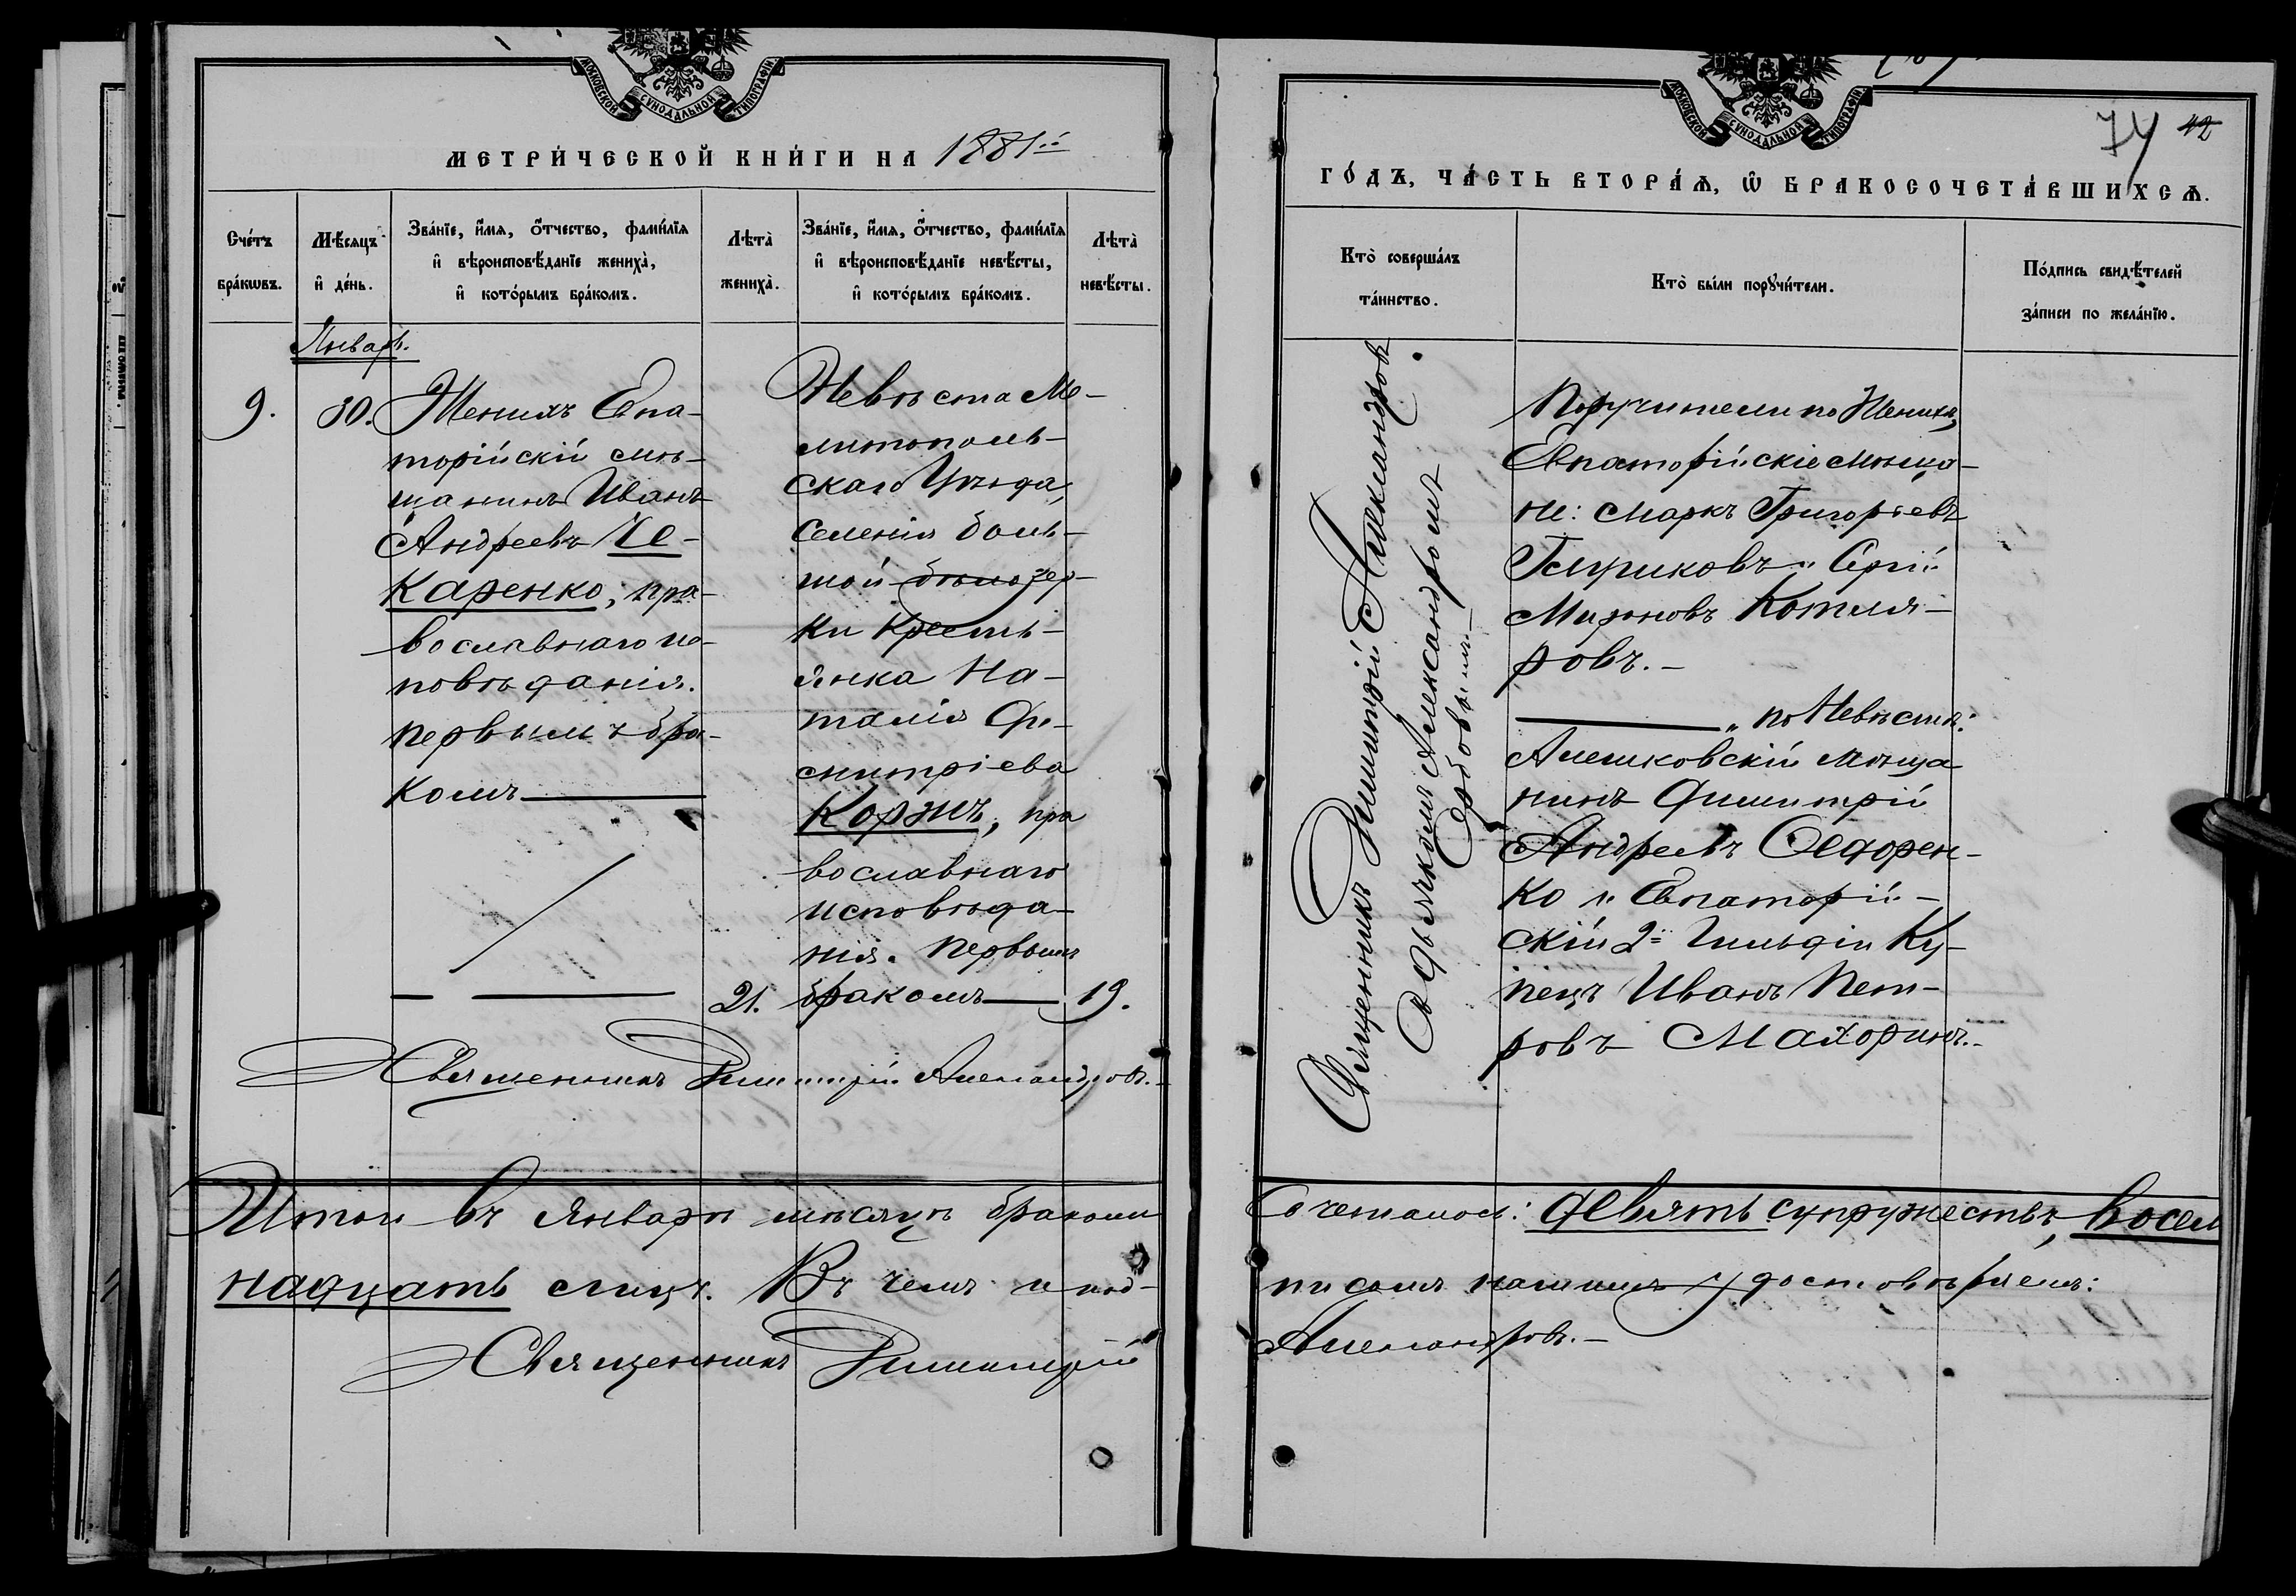 МОСКОВСКОЙ СУНОДАЛЬНОЙ ТИПОГРАФІИ
МЕТРИ́ЧЕСКОЙ КНИ́ГИ НА 1881й
Сче́тъ бра́кωвъ.
Мѣ́сяцъ и҆ де́нь.
Зва́нїе, и҆́мя, ѻ҆́тчество, фами́лїя
и҆ вѣроисповѣ́данїе жениха̀,
и҆ кото́рымъ бра́комъ.
Лѣта̀ жениха̀.
Зва́нїе, и҆́мя, ѻ҆́тчество, фами́лїя
и҆ вѣроисповѣ́данїе невѣ́сты,
и҆ кото́рымъ бра́комъ.
Лѣта̀ невѣ́сты.
Январь.
9.
30.
Женихъ Евпа-
торійскій мѣ-
щанинъ Иванъ
Андреевъ Че-
каренко, пра-
вославнаго ис-
повѣданія.
первымъ бра-
комъ
21.
Невѣста Ме-
литополь-
скаго Уѣзда,
Селенія боль-
шой бѣлозер-
ки Кресть-
янка На-
талія Ди-
митріева
Коржъ, пра
вославнаго
исповѣда-
нія. Первымъ
бракомъ
19.
Священникъ Димитрій Александровъ.-
Итого въ Январѣ мѣсяцѣ бракомъ
надцать лицъ. Въ чемъ и под-
Священникъ Димитрій
МОСКОВСКОЙ СУНОДАЛЬНОЙ ТИПОГРАФІИ
74 42
ГО́ДЪ, ЧА́СТЬ ВТОРА́Я, Ѽ БРАКОСОЧЕТА́ВШИХСЯ.
Кто̀ соверша́лъ
та́инство.
Кто̀ бы́ли порꙋчи́тели.
По́дпись свидѣ́телей
за́писи по жела́нїю.
Священникъ Димитрій Александровъ
съ дьячкомъ Александромъ
Сербовымъ-
Поручители по Женихѣ,
Евпаторійскіе мѣща-
не: Маркъ Григорьевъ
и Сергій
Мироновъ Котля-
ровъ.-
" по Невѣстѣ:
Алешковскій мѣща
нинъ Димитрій
Андреевъ Седорен-
ко и Евпаторій-
скій 2й Гильдіи Ку-
пецъ Иванъ Пет-
ровъ Махоринъ.-
сочеталось: девять супружествъ, восем
писомъ нашимъ удостовѣряемъ:
Александровъ.-